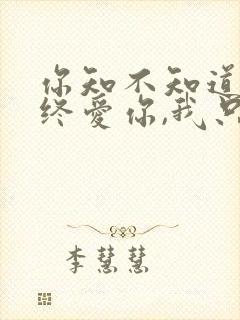 你知不知道
终爱你,我只
李慧慧